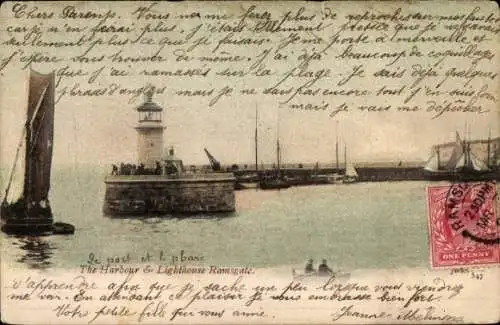 Chers Parents. Vous ne me ferez plus de reproches sur mes fautes
car je n'en ferai plus, j'étais tellement pressée que je faisais
seulement plus ce que je faisais. Je me porte à merveille et
j'espère vous trouver de même. J'ai déjà beaucoup de coquillages
que j'ai ramassés sur la plage. Je sais déjà quelques
phrases d'anglais mais ne sais pas encore tout
mais je vais me dépêcher
Le port et le phare
The Harbour & Lighthouse Ramsgate.
d'apprendre afin que je sache un peu lorsque vous viendrez
me voir. En attendant ce plaisir je vous embrasse bien fort.
Votre petite fille qui vous aime. Jeanne
RAMSGATE
ONE PENNY
347